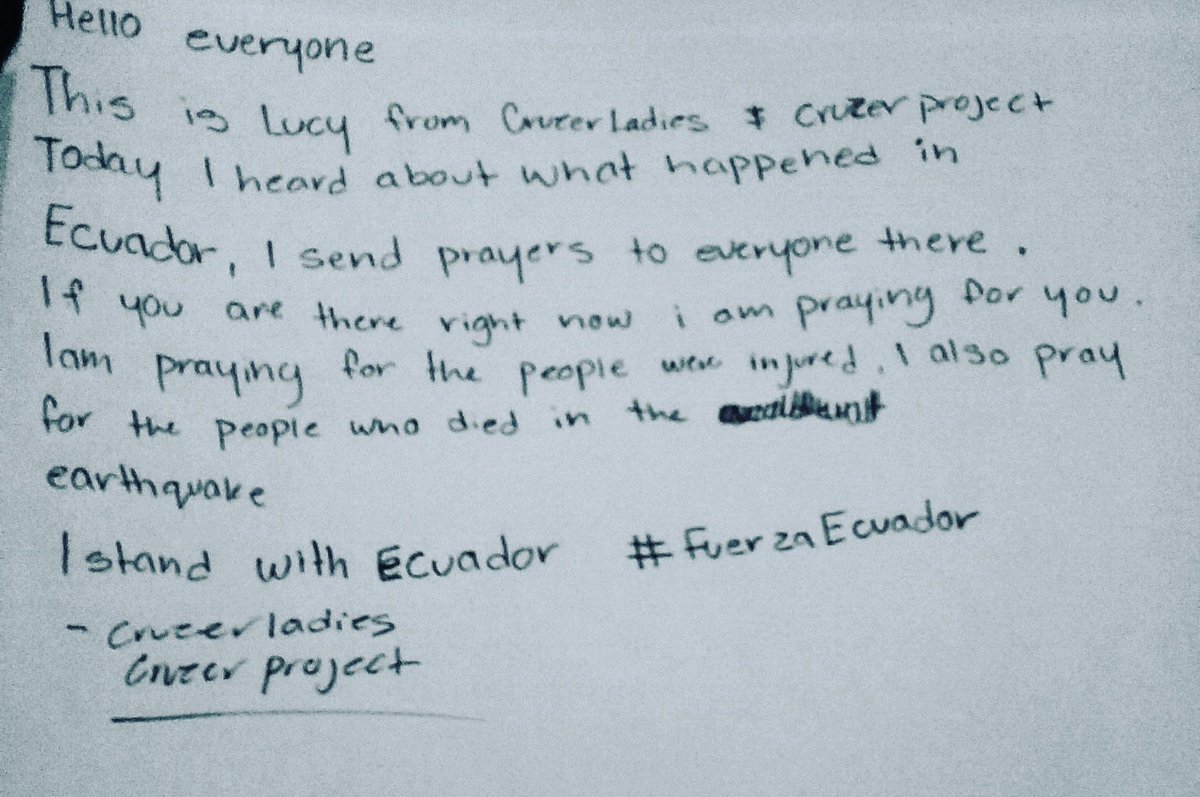 Hello everyone
This is Lucy from Cruzerladies & cruzer project
Today I heard about what happened in
Ecuador, I send prayers to everyone there.
If you are there right now i am praying for you.
Iam praying for the people were injured. I also pray
for the people who died in the
earthquake
I stand with Ecuador #FuerzaEcuador
- cruzerladies
Cruzer project